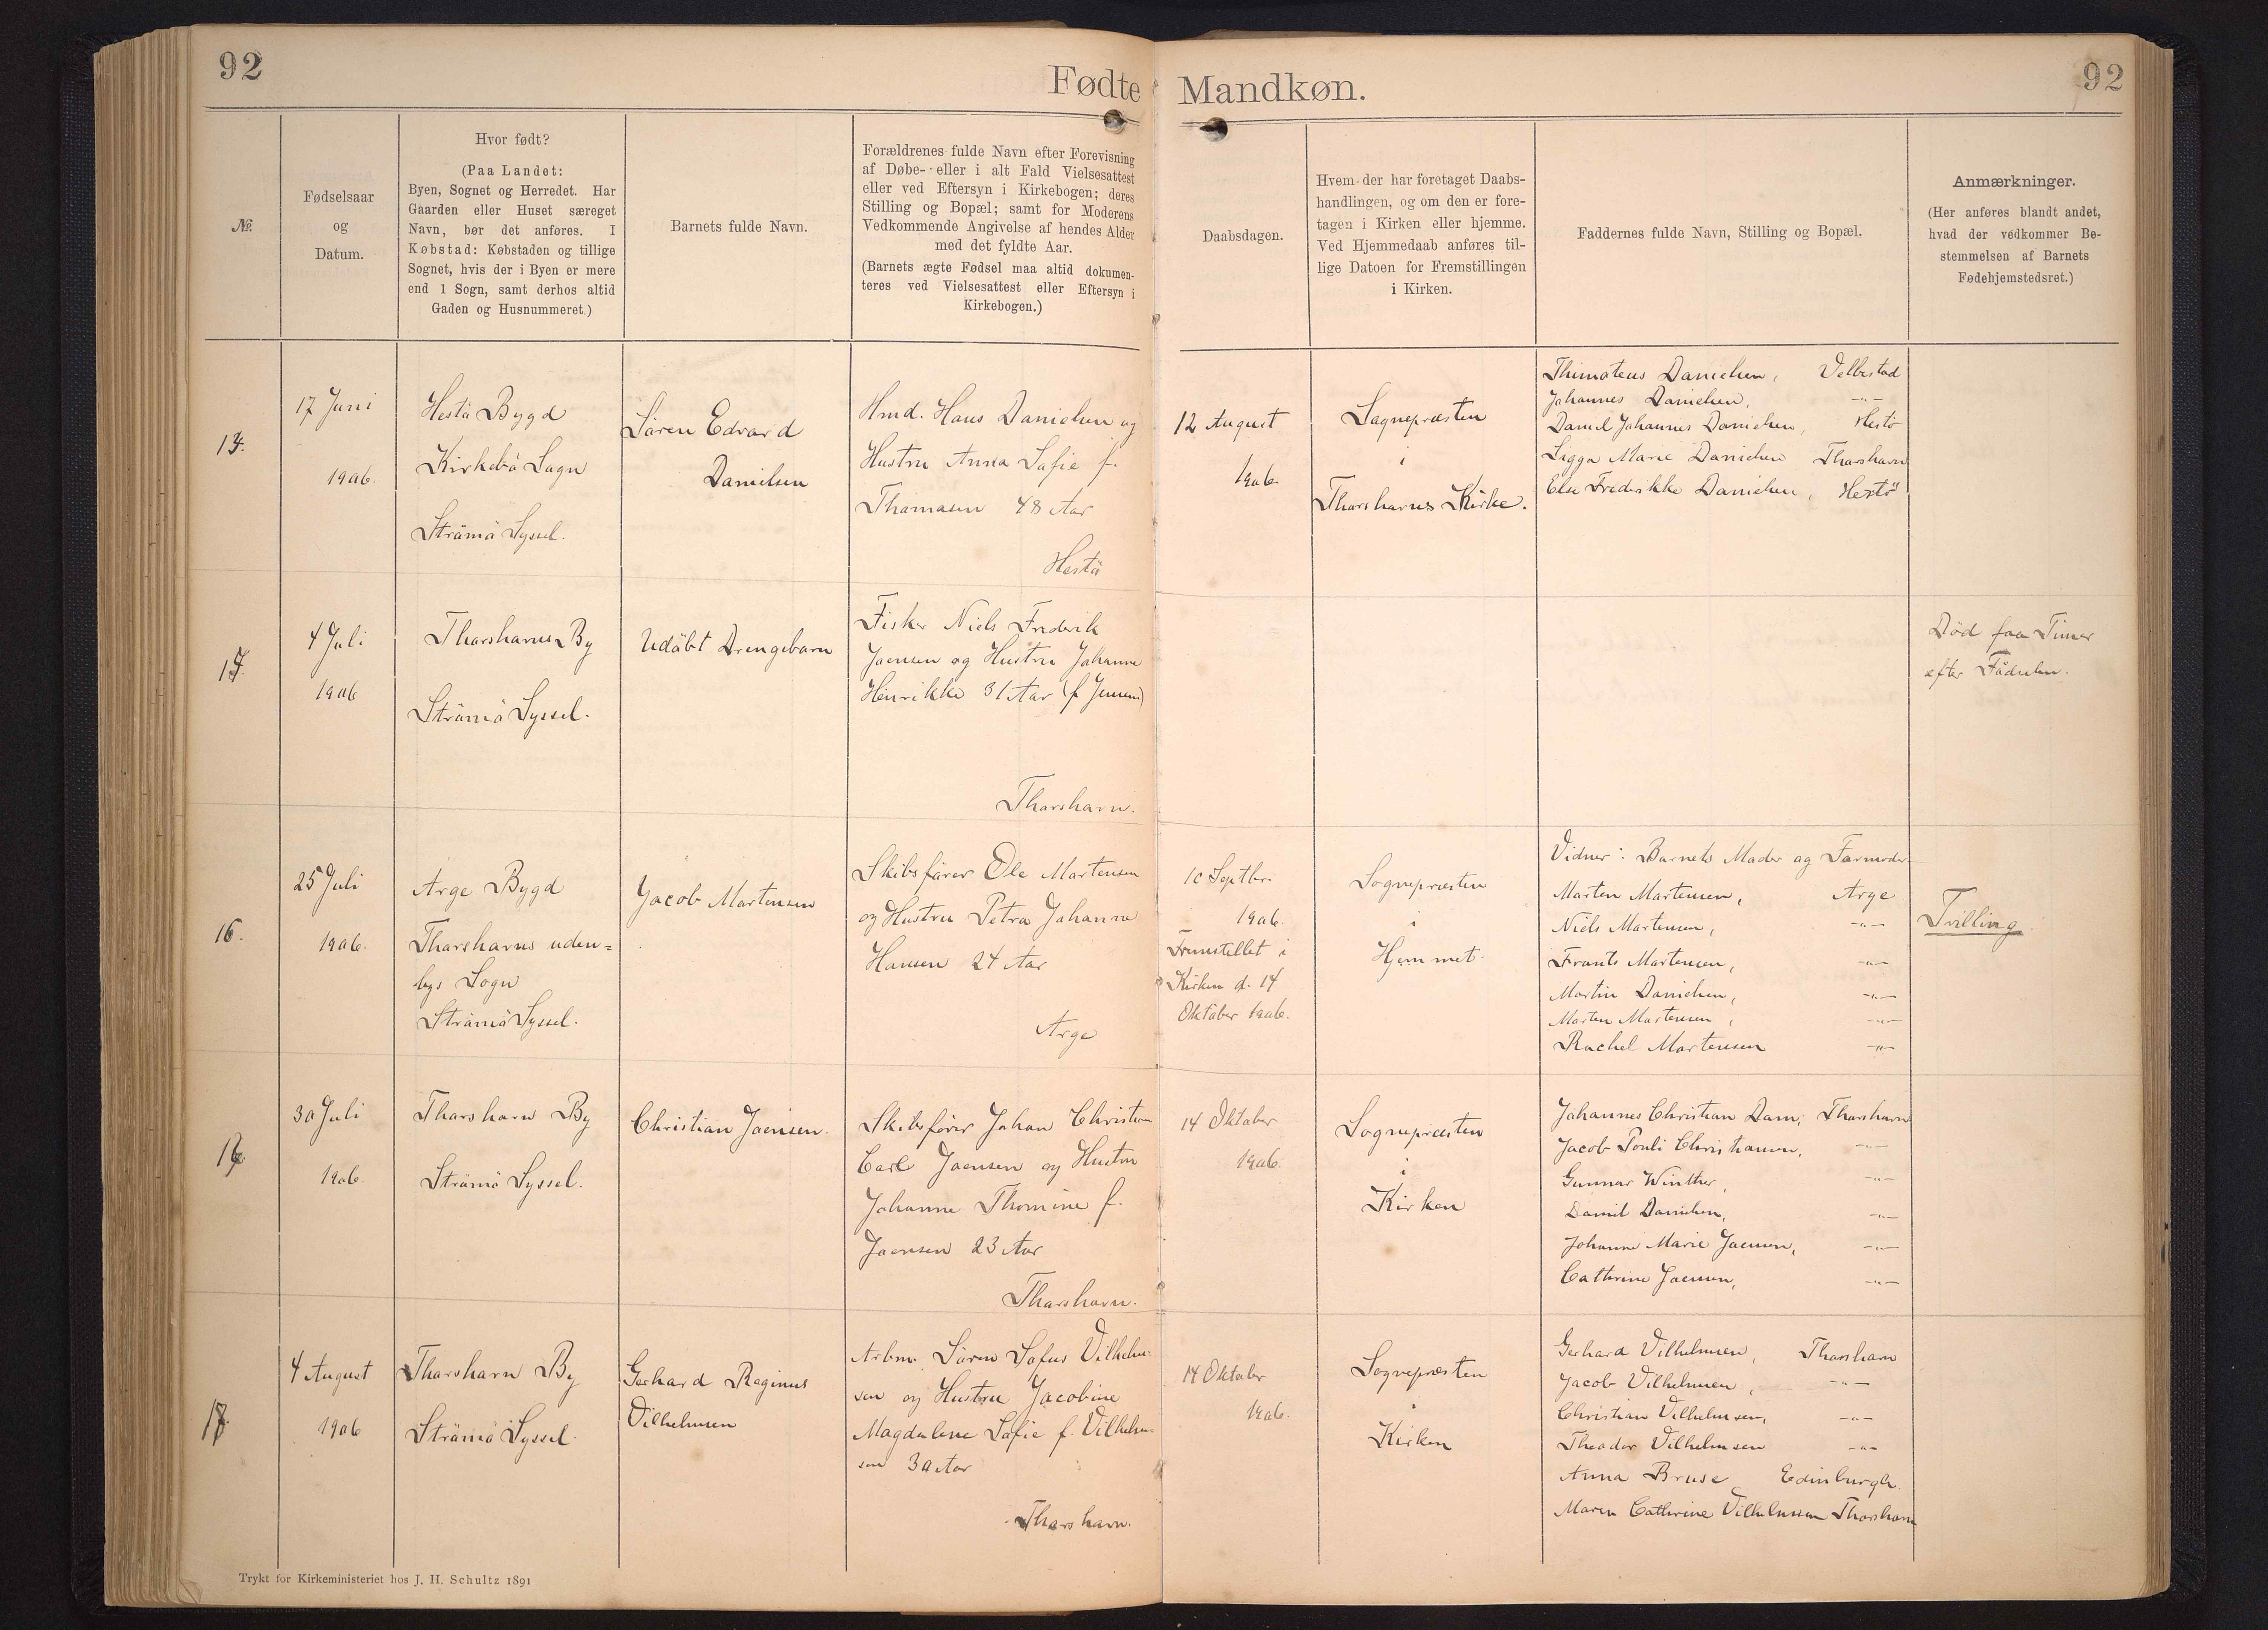 92
Fødte
Mandkøn.
92
No.
Fødselsaar
og
Datum.
Hvor født?
(Paa Landet:
Byen, Sognet og Herredet. Har
Gaarden eller Huset særeget
Navn, bør det anføres. I
Købstad: Købstaden og tillige
Sognet, hvis der i Byen er mere
end 1 Sogn, samt derhos altid
Gaden og Husnummeret.)
Barnets fulde Navn.
Forældrenes fulde Navn efter Forevisning
af Døbe- eller i alt Fald Vielsesattest
eller ved Eftersyn i Kirkebogen; deres
Stilling og Bopæl; samt for Moderens
Vedkommende Angivelse af hendes Alder
med det fyldte Aar.
(Barnets ægte Fødsel maa altid dokumen-
teres ved Vielsesattest eller Eftersyn i
Kirkebogen.)
Daabsdagen.
Hvem der har foretaget Daabs-
handlingen, og om den er fore-
tagen i Kirken eller hjemme.
Ved Hjemmedaab anføres til-
lige Datoen for Fremstillingen
i Kirken.
Faddernes fulde Navn, Stilling og Bopæl.
Anmærkninger.
(Her anføres blandt andet,
hvad der vedkommer Be-
stemmelsen af Barnets
Fødehjemstedsret.)
17 Juni
1906.
Hestö Bygd
Kirkebö Sogn
Strömö Syssel.
Sören Edvard
Danielsen
Hmd. Hans Danielsen og
Hustru Anna Sofie f.
Thomasen 48 Aar
Hestö
12 August
1906.
Sognepræsten
i
Thorshavns Kirke.
Thimoteus Danielsen, Velbestad
Johannes Danielsen, -"-
Daniel Johannes Danielsen, Hestö
Sigga Marie Danielsen Thorshavn
Else Frederikke Danielsen, Hestö
4 Juli
1906
Thorshavns By
Strömö Syssel.
Udöbt Drengebarn
Fisker Niels Frederik
Joensen og Hustru Johanne
Henrikke 31 Aar (f Jensen)
Thorshavn.
Död faa Timer
efter Födselen.
16.
25 Juli
1906.
Arge Bygd
Thorshavns uden=
bys Sogn
Strömö Syssel.
Jacob Martensen
Skibsförer Ole Martensen
og Hustru Petra Johanne
Hansen 24 Aar
Arge
10 Septbr.
1906.
Fremstillet i
Kirken d. 14
Oktober 1906.
Sognepræsten
i
Hjemmet.
Vidner: Barnets Moder og Farmoder
Morten Martensen, Arge
Niels Martensen, -"-
Frants Martensen, -"-
Martin Danielsen, -"-
Morten Martensen, -"-
Rachel Martensen -"-
Tvilling.
30 Juli
1906.
Thorshavn By
Strömö Syssel.
Christian Joensen.
Skibsförer Johan Christian
Carl Joensen og Hustru
Johanne Thomine f.
Joensen 23 Aar
Thorshavn.
14 Oktober
1906.
Sognepræsten
i
Kirken
Johannes Christian Dam, Thorshavn
Jacob Pouli Christiansen, -"-
Gunnar Winther, -"-
Daniel Danielsen, -"-
Johanne Marie Joensen, -"-
Cathrine Joensen, -"-
4 August
1906
Thorshavn By
Strömö Syssel.
Gerhard Reginus
Vilhelmsen
Arbm. Sören Sofus Vilhelm-
sen og Hustru Jacobine
Magdalene Sofie f. Vilhelm-
sen 30 Aar
Thorshavn.
14 Oktober
1906.
Sognepræsten
i
Kirken
Gerhard Vilhelmsen, Thorshavn
Jacob Vilhelmsen, -"-
Christian Vilhelmsen, -"-
Theodor Vilhelmsen -"-
Anna Bruse Edinburgh.
Maren Cathrine Vilhelmsen Thorshavn
Trykt for Kirkeministeriet hos J. H. Schultz 1891